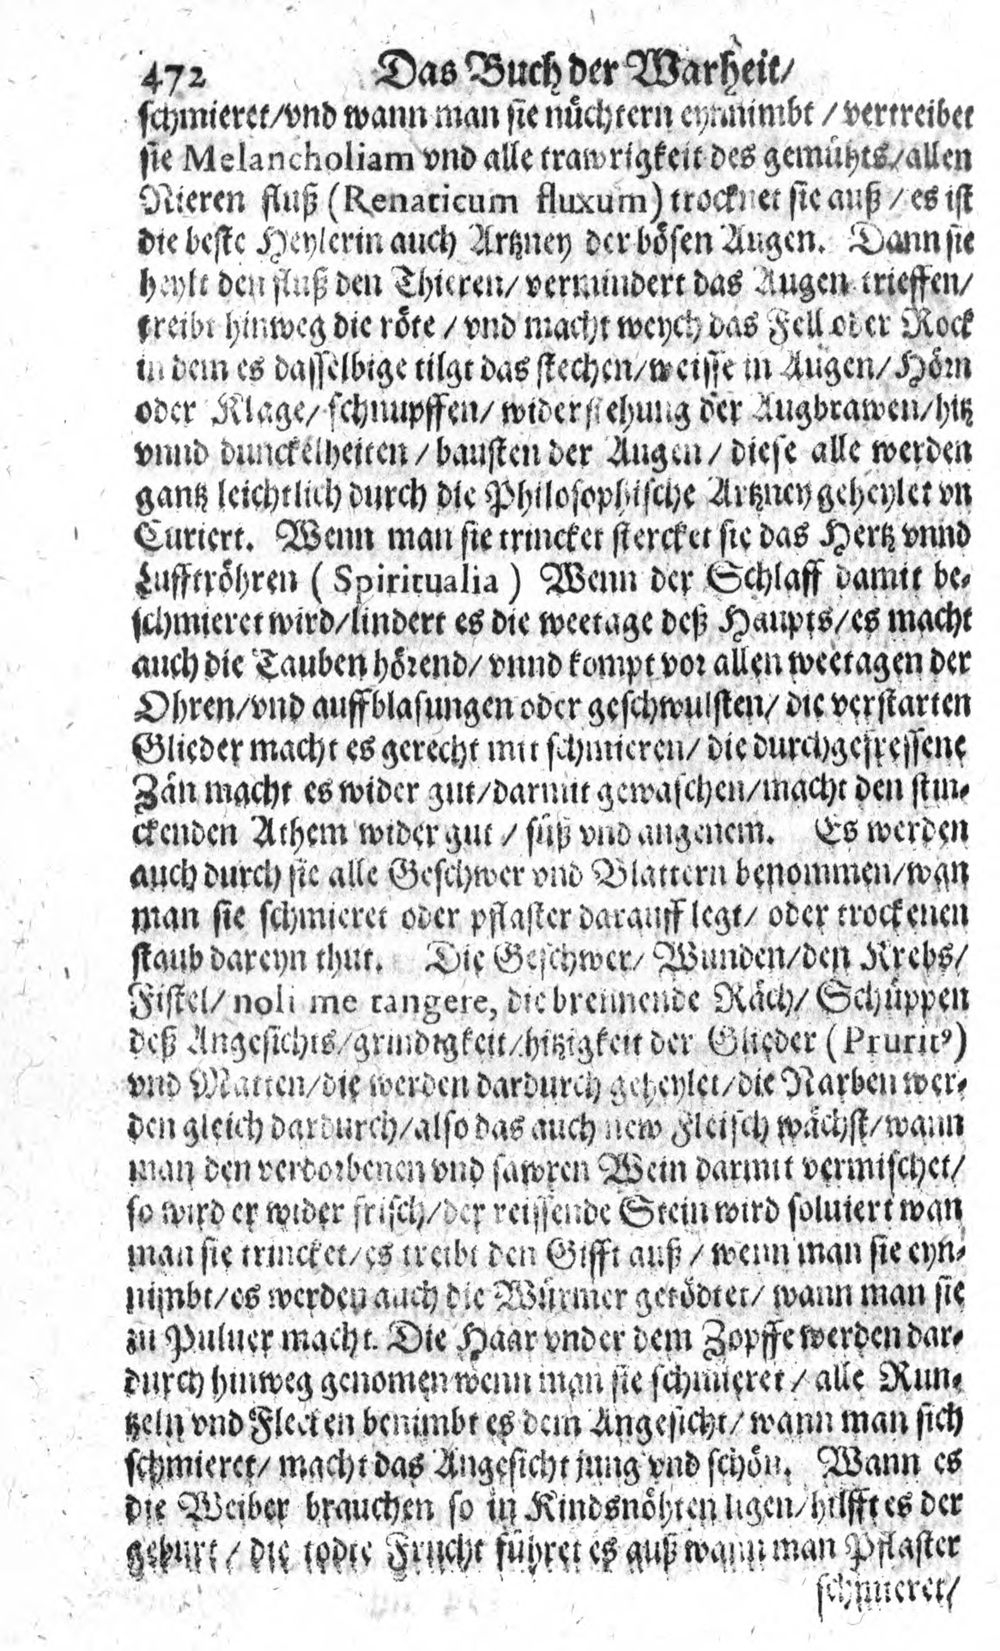 472 Das Buch der Warheit/
schmieret/vnd wann man sie nüchtern eynnimbt / vertreibet
sie Melancholiam vnd alle trawrigkeit des gemühts/allen
Nieren fluß (Renaticum fluxum) trocknet sie auß / es ist
die beste Heylerin auch Artzney der bösen Augen. Dann sie
heylt den fluß den Thieren/ vermindert das Augen trieffen/
treibt hinweg die röte / vnd macht weych das Fell oder Rock
in dem es dasselbige tilgt das stechen/weisse in Augen/ Hörn
oder Klage/ schnupffen/ widerstehung der Augbrawen/hitz
vnnd dunckelheiten / bausten der Augen / diese alle werden
gantz leichtlich durch die Philosophische Artzney geheylet vn
Curiert. Wenn man sie trincket stercket sie das Hertz vnnd
Lufftröhren ( Spiritualia ) Wenn der Schlaff damit be-
schmieret wird/lindert es die weetage deß Haupts/es macht
auch die Tauben hörend/ vnnd kompt vor allen weetagen der
Ohren/vnd auffblasungen oder geschwulsten/ die verstarten
Glieder macht es gerecht mit schmieren/ die durchgefressene
Zän macht es wider gut/darmit gewaschen/macht den stin-
ckenden Athem wider gut / süß vnd angenem. Es werden
auch durch sie alle Geschwer vnd Blattern benommen/wan
man sie schmieret oder pflaster darauff legt/ oder trockenen
staub dareyn thut. Die Geschwer/ Wunden/den Krebs/
Fistel/ noli me tangere, die brennende Räch/ Schüppen
deß Angesichts/grindigkeit/hitzigkeit der Glieder (Prurit⁹)
vnd Matten/die werden dardurch geheylet/die Narben wer-
den gleich dardurch/also das auch new Fleisch wächst/wann
man den verdorbenen vnd sawren Wein darmit vermischet/
so wird er wider frisch/der reissende Stein wird soluiert wan
man sie trincket/es treibt den Gifft auß / wenn man sie eyn-
nimbt/es werden auch die Würmer getödtet/ wann man sie
zu Puluer macht. Die Haar vnder dem Zopffe werden dar-
durch hinweg genomen wenn man sie schmieret / alle Run-
tzeln vnd Flecken benimbt es dem Angesicht/ wann man sich
schmieret/ macht das Angesicht jung vnd schön. Wann es
die Weiber brauchen so in Kindsnöhten ligen/hilfft es der
geburt / die todte Frucht führet es auß wann man Pflaster
schmieret/